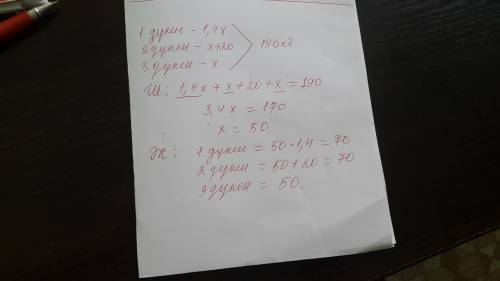 1 дукен – 1,4x
2 дукен – x+20 190 кг
3 дукен – x
Ш: 1,4x + x + 20 + x = 190
3,4x = 170
x = 50.
Ж: 1 дукен = 50·1,4 = 70
2 дукен = 50+20 = 70
3 дукен = 50.